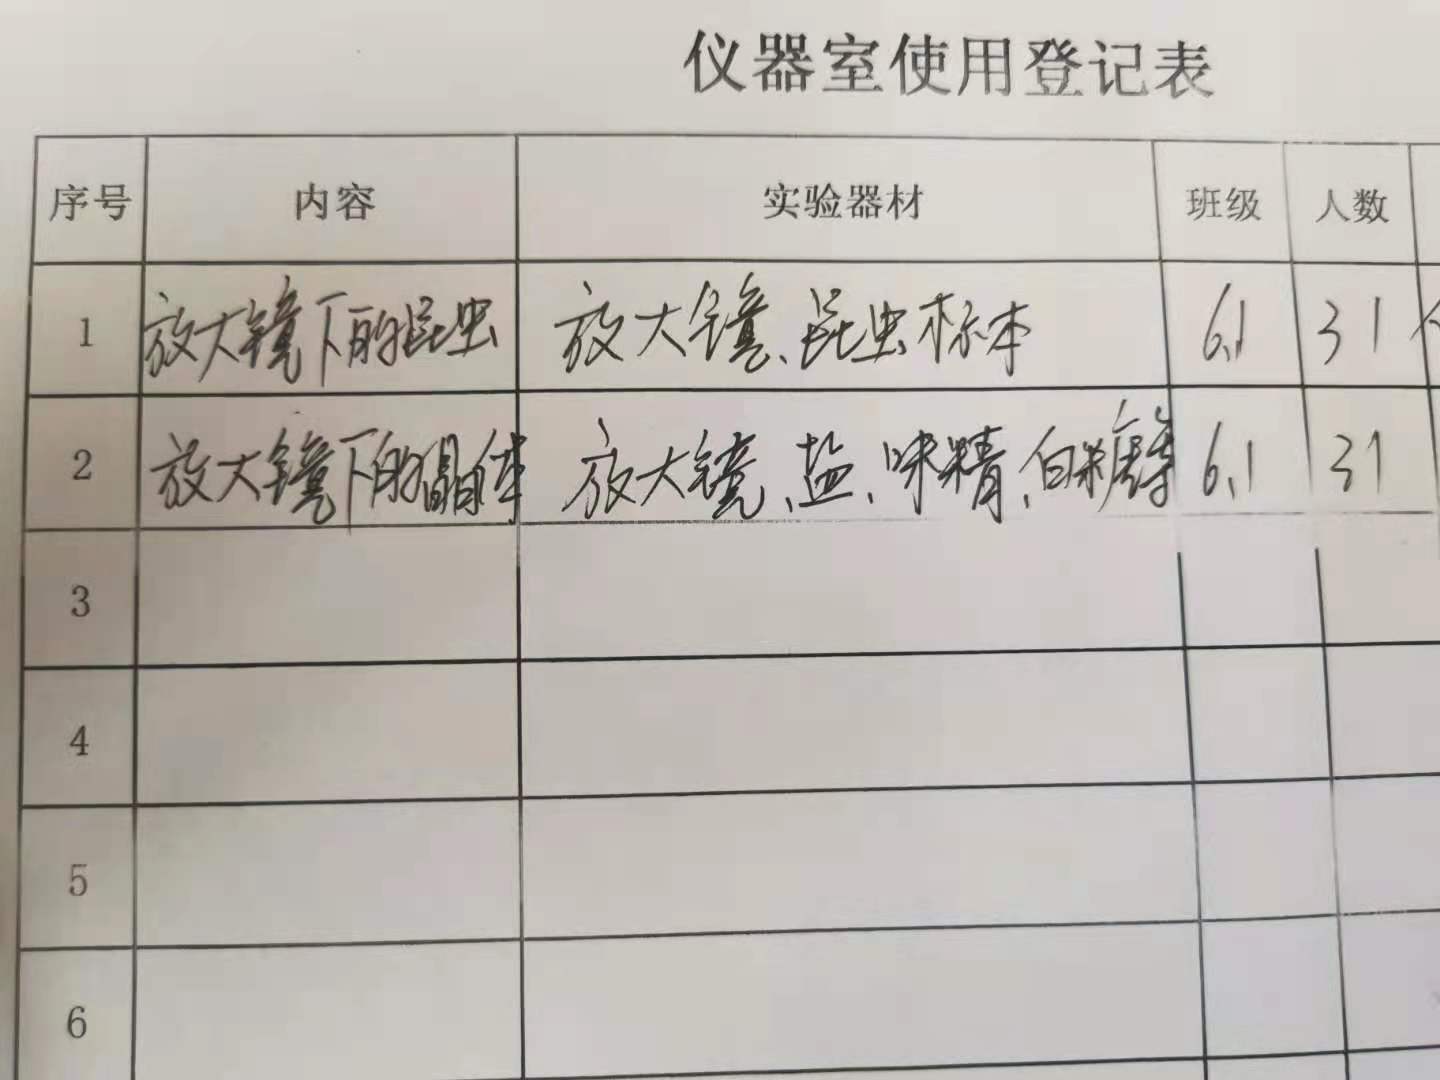 仪器室使用登记表
序号 内容 实验器材 班级 人数
1 放大镜下的昆虫 放大镜、昆虫标本 6.1 31
2 放大镜下的晶体 放大镜、盐、味精、白糖等 6.1 31
3
4
5
6